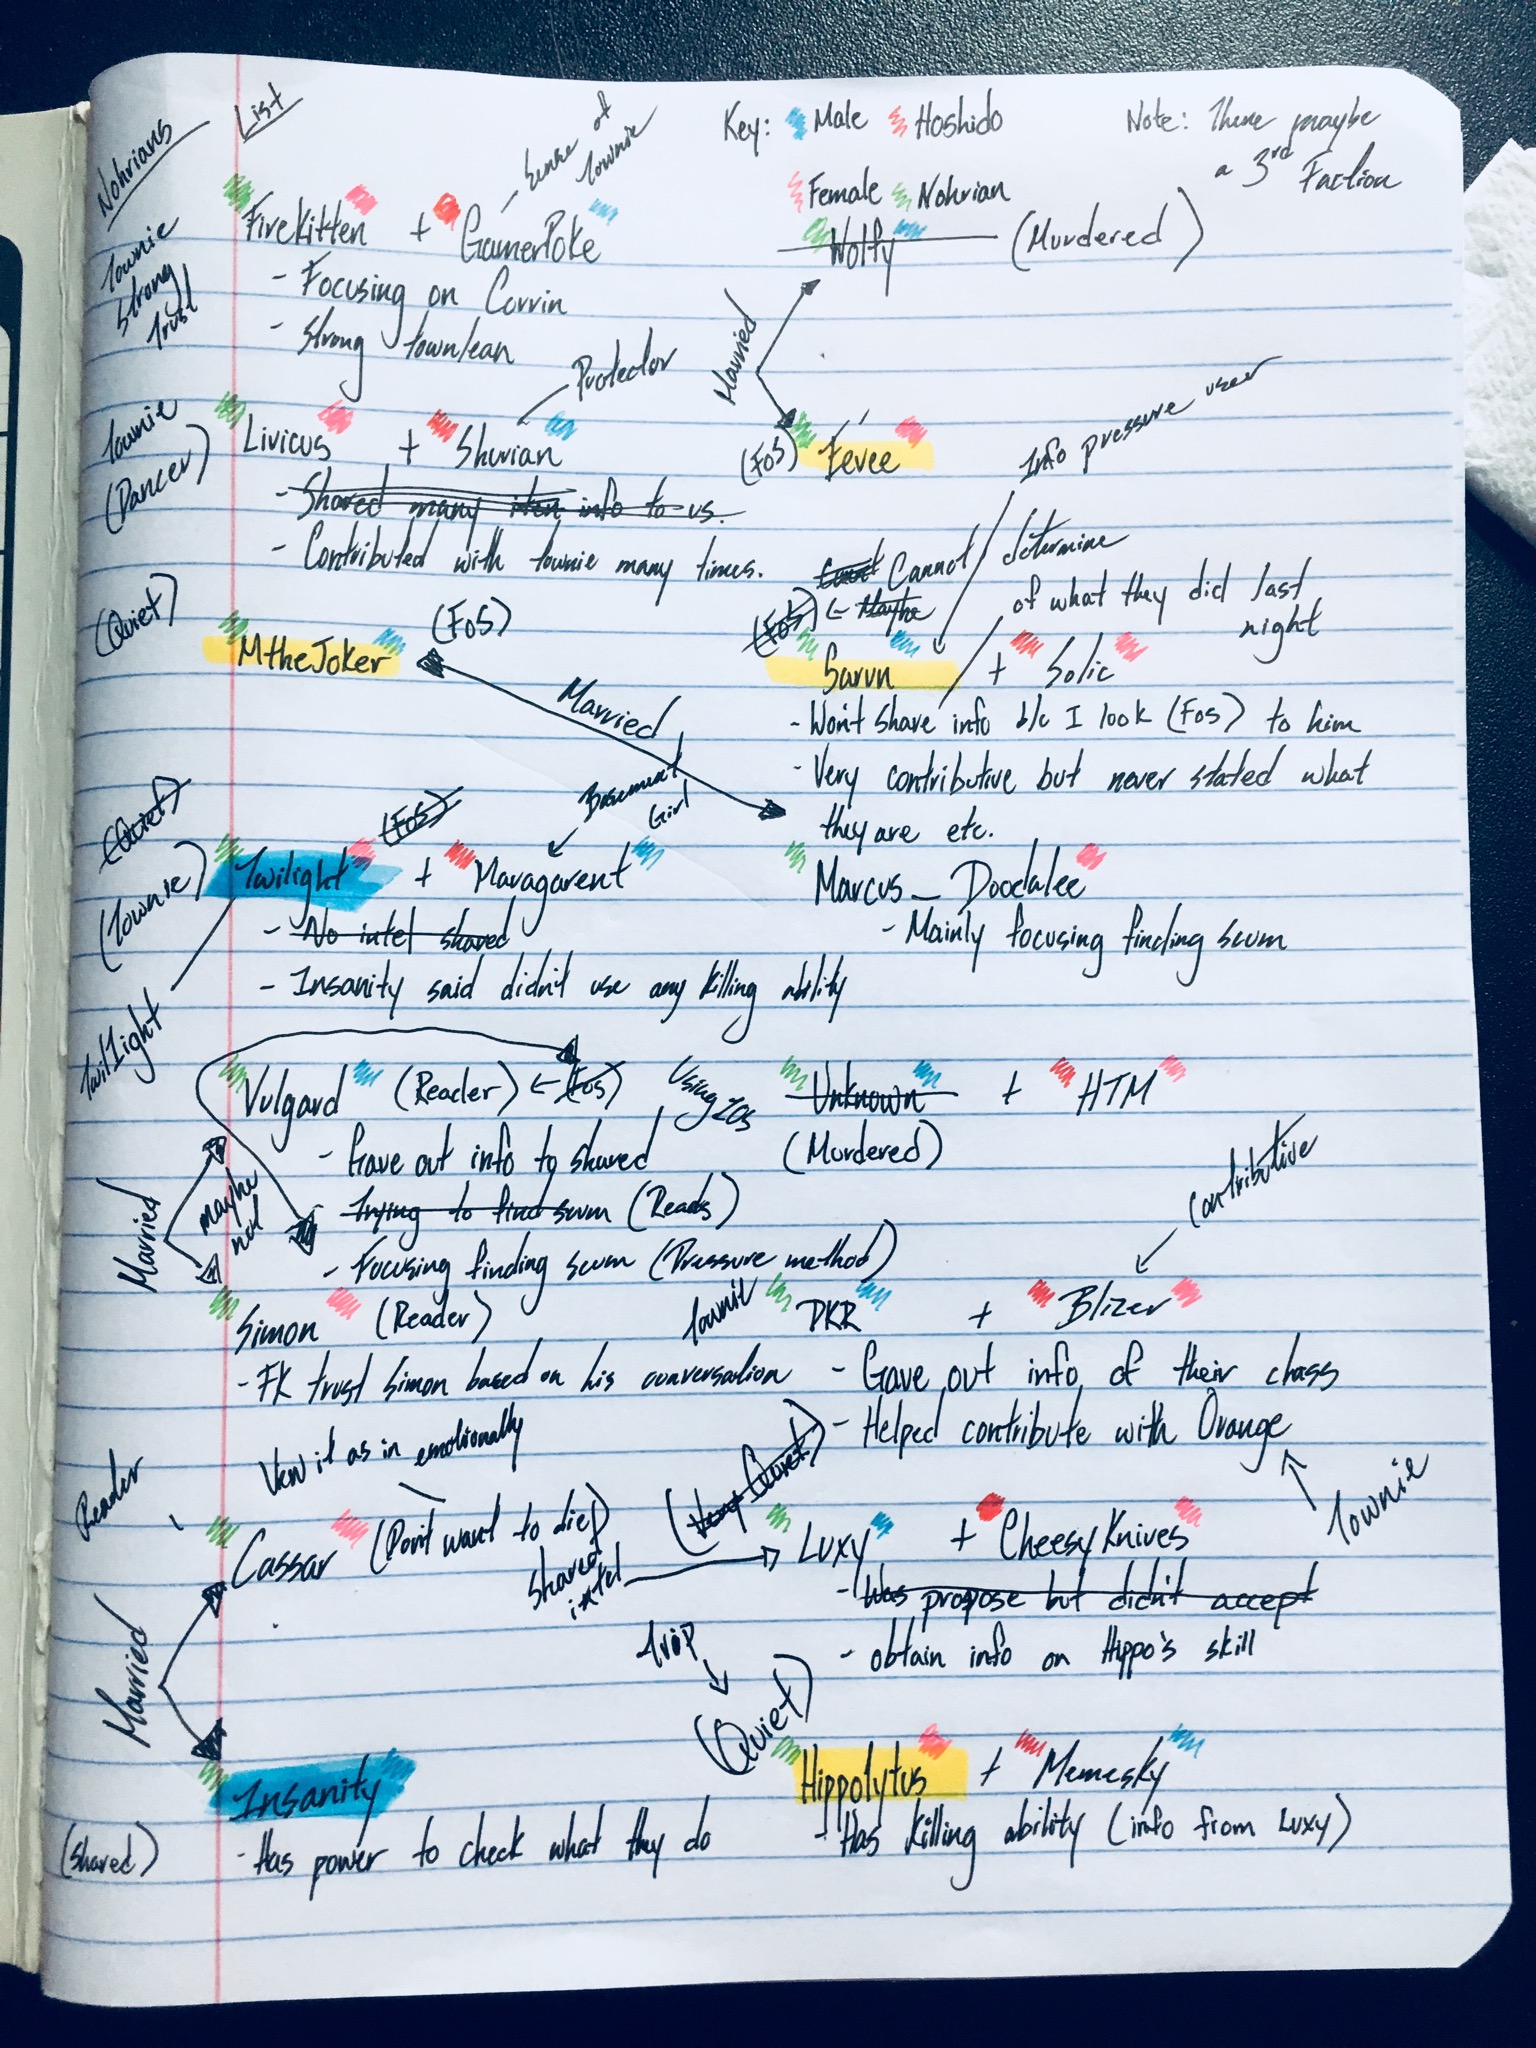 Nohrians
List
Key: Male Hoshido
Female Nohrian
Note: There maybe
a 3rd Faction
Townie
Strong
Trust
Sense of
Townie
FireKitten + GamerPoke
- Focusing on Corrin
- Strong townlean
Wolfy (Murdered)
Married
Townie
(Dancer)
Protector
Livicus + Shurian
- Shared many info to us.
- Contributed with townie many times.
(FoS) Eevee
Info pressure user
(Quiet)
MtheJoker (FoS)
Married
Cannot determine
of what they did last
night
(FoS) ← Maybe
Sarvn + Solic
- Won't share info b/c I look (FoS) to him
- Very contributive but never stated what
they are etc.
Marcus_Doodalee
- Mainly focusing finding scum
(Quiet)
(Townie)
(FoS)
Basement
Girl
Twilight + Maragarent
- No intel shared
- Insanity said didn't use any killing ability
Twilight
Vulgard (Reader) ← (FoS)
- Gave out info to shared
- Trying to find scum (Reads)
- Focusing finding scum (Pressure method)
Married
maybe
not
Using
Unknown + HTM
(Murdered)
Contributive
Simon (Reader)
- FK trust Simon based on his conversation
Townie
DKR + Blizer
- Gave out info of their class
- Helped contribute with Orange
Townie
View it as in emotionally
Reader
Cassar (Don't want to die)
shared
intel
(Very Quiet)
Luxy + CheesyKnives
- Was propose but didn't accept
- obtain info on Hippo's skill
Married
Trip
(Quiet)
Insanity
(shared)
- Has power to check what they do
Hippolytus + Memesky
- Has killing ability (info from Luxy)